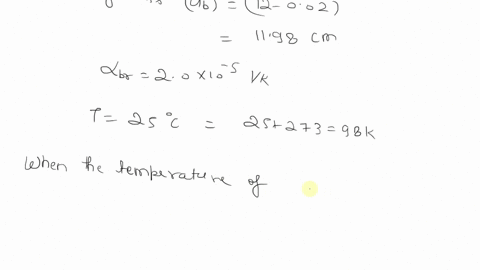 (db) = (12-0.02)
= 11.98 cm
αbr = 2.0 × 10⁻⁵ 1/K
T = 25°C = 25+273 = 98K
When the temperature of